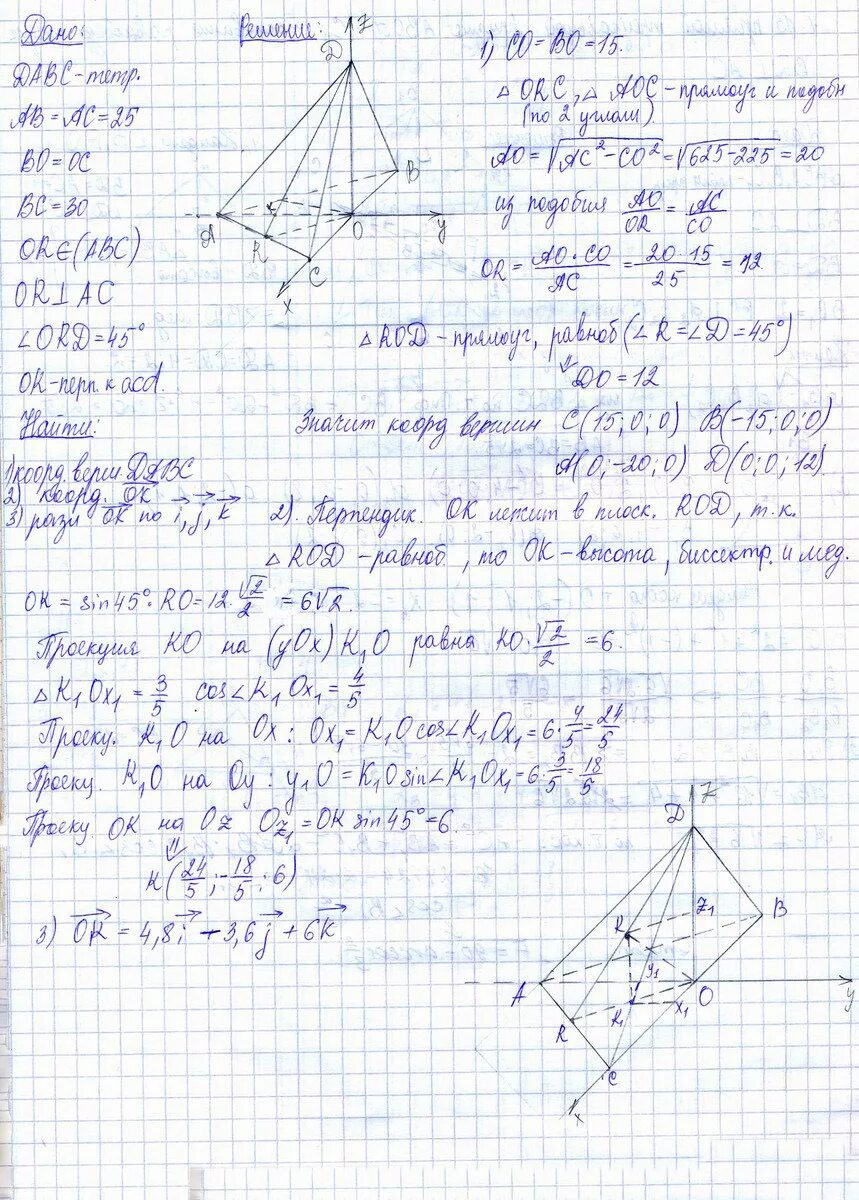 Дано:
DABC - тетр.
AB = AC = 25
BO = OC
BC = 30
OR ∈ (ABC)
OR ⊥ AC
∠ORD = 45°
OK - перп. к acd.
Найти:
1) коорд. верш DABC
2) коорд. OK
3) разл OK по i, j, k
Решение:
Z
D
B
A
K
O
y
R
C
x
1) CO = BO = 15.
△ ORC, △ AOC - прямоуг и подобн
(по 2 углам)
AO = √AC² - CO² = √625 - 225 = 20
из подобия AO/OR = AC/CO
OR = AO · CO/AC = 20 · 15/25 = 12
△ ROD - прямоуг, равноб (∠R = ∠D = 45°)
⇓
DO = 12
Значит коорд вершин C(15; 0; 0) B(-15; 0; 0)
A(0; -20; 0) D(0; 0; 12)
2). Перпендик. OK лежит в плоск. ROD, т.к.
△ ROD - равноб, то OK - высота, биссектр. и мед.
OK = sin 45° · RO = 12 · √2/2 = 6√2.
Проекция KO на (yOx) K₁O равна KO · √2/2 = 6.
△ K₁Ox₁ = 3/5 cos∠K₁Ox₁ = 4/5
Проэку. K₁O на Ox: Ox₁ = K₁O cos∠K₁Ox₁ = 6 · 4/5 = 24/5
Проэкц. K₁O на Oy: y₁O = K₁O sin∠K₁Ox₁ = 6 · 3/5 = 18/5
Проэку OK на Oz Oz₁ = OK sin 45° = 6.
⇓
K(24/5; -18/5; 6)
3) OK = 4,8i - 3,6j + 6k
Z
D
Z₁
B
K
y₁
A
O
y
K₁
x₁
R
C
x